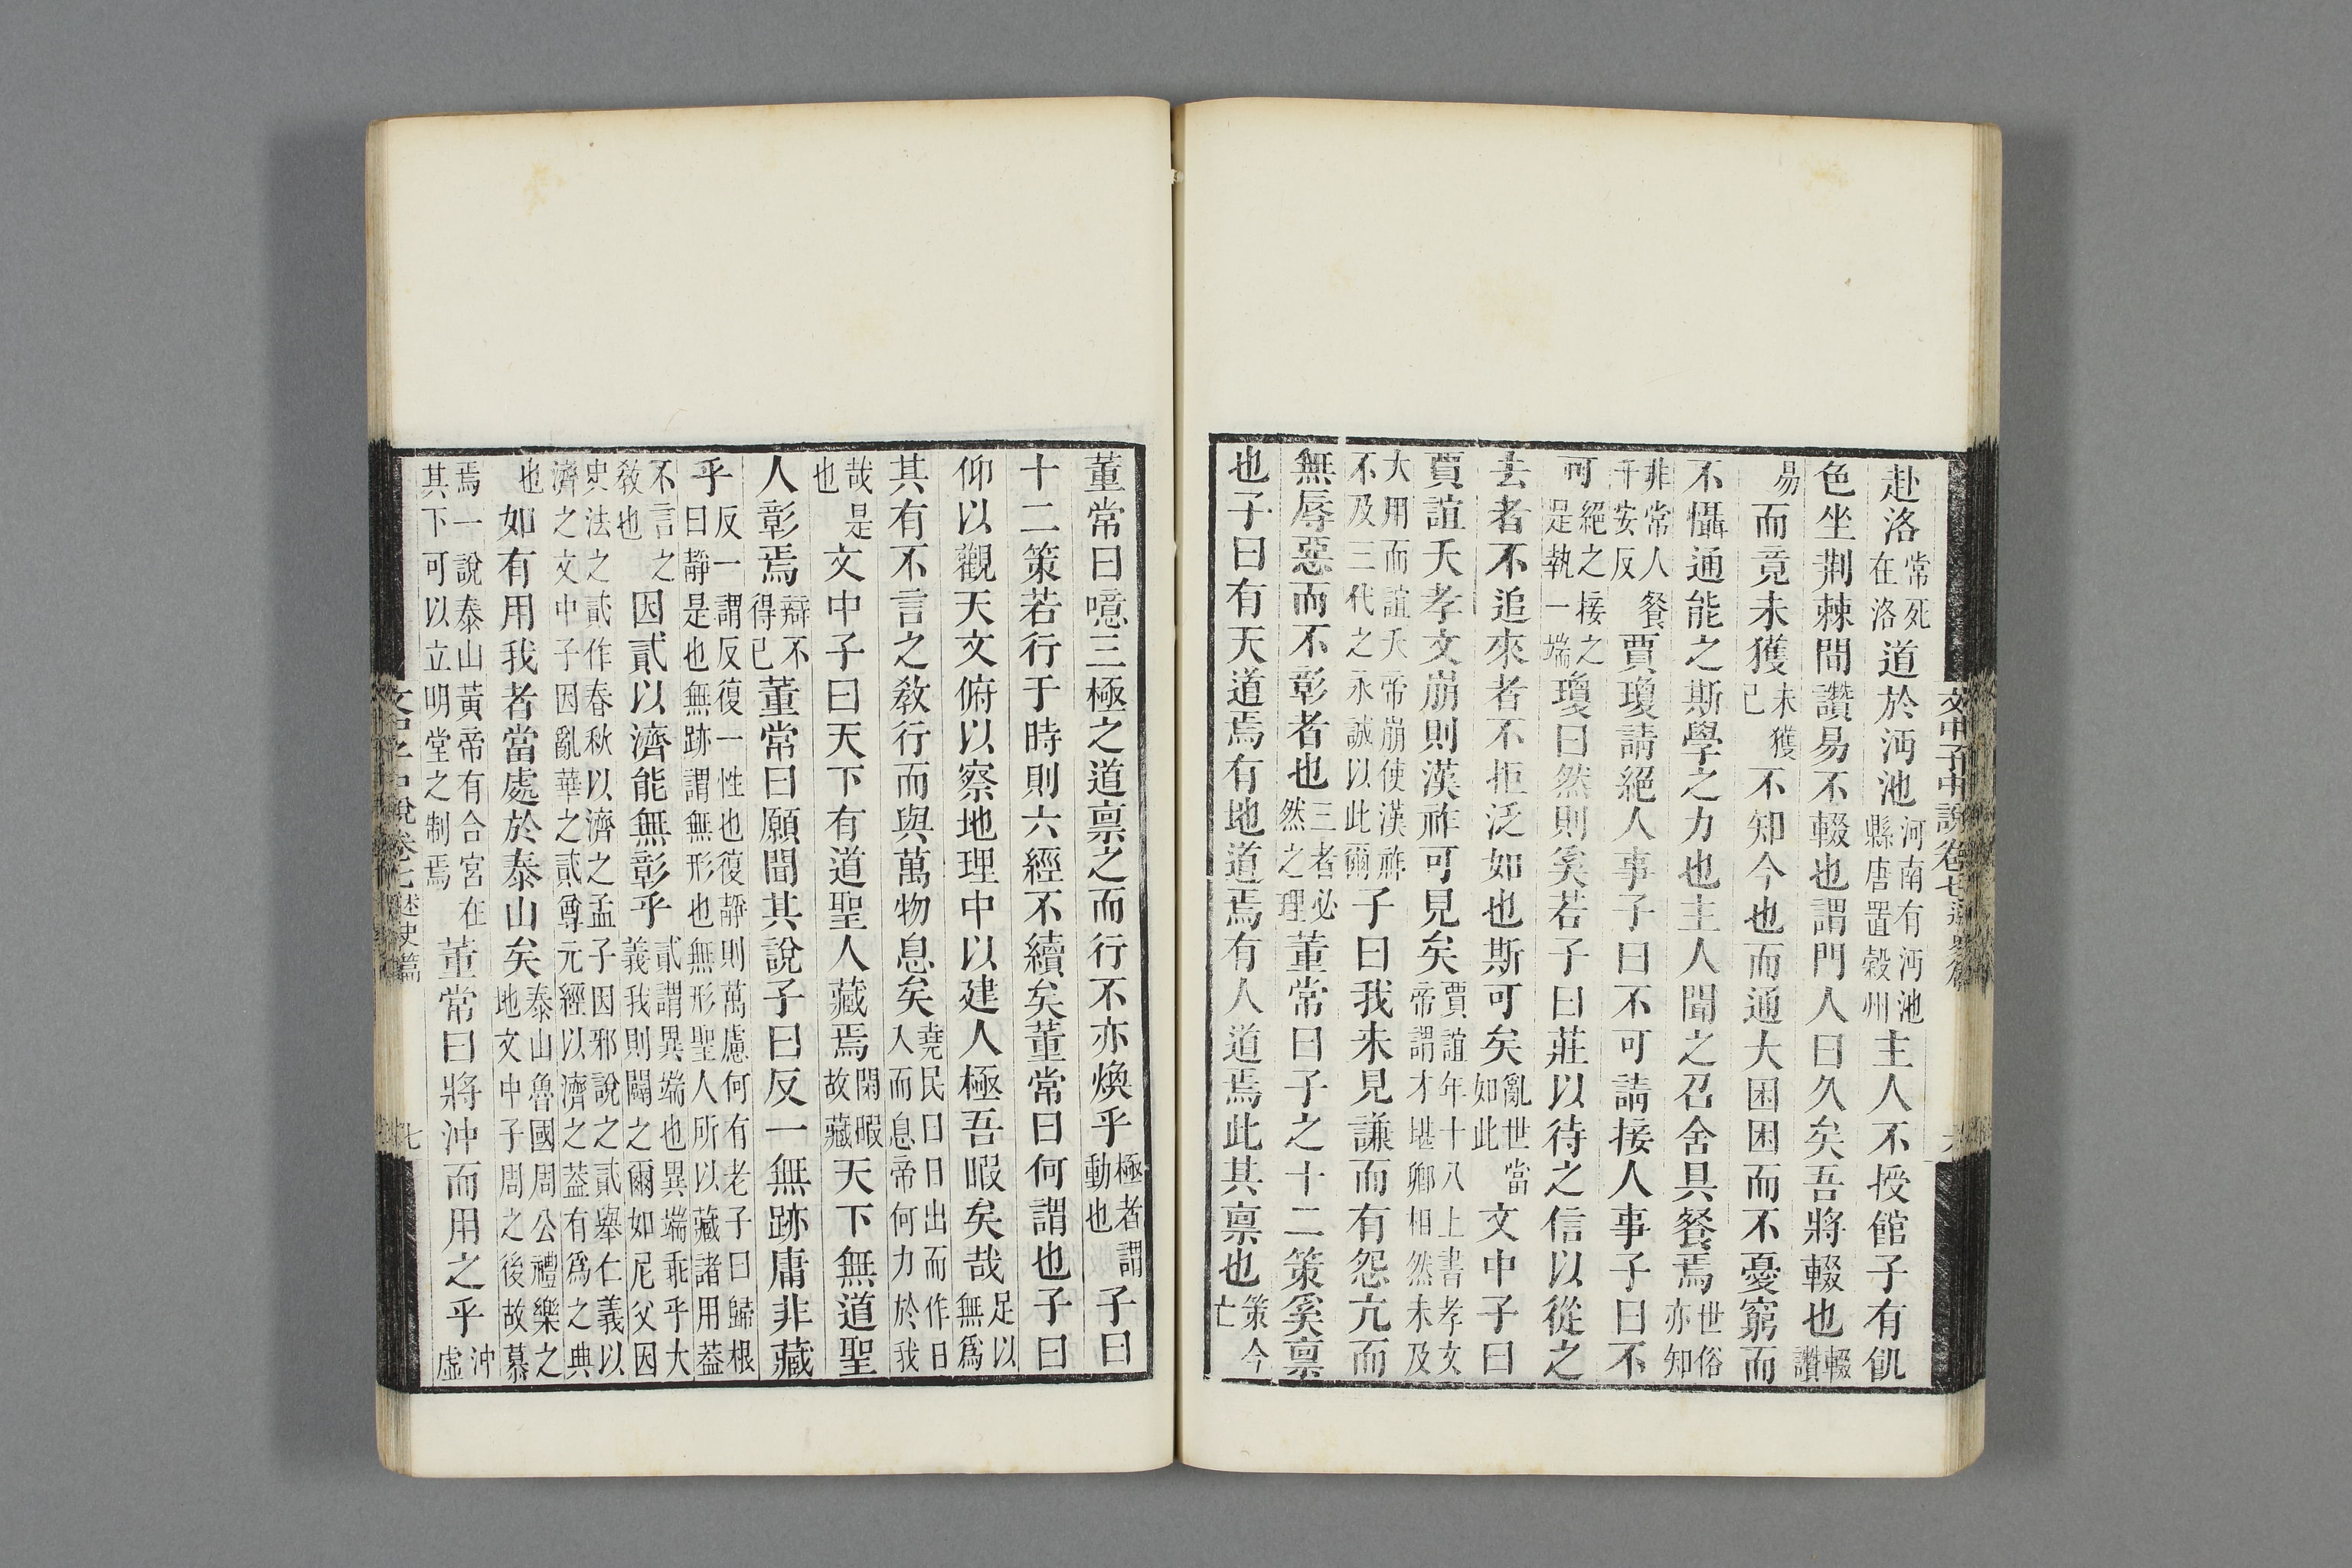 赴洛常死在洛道於沔池河南有沔池縣唐置穀州主人不授館子有飢
色坐荆棘間讚易不輟也謂門人曰久矣吾將輟也輟讚
易而竟未獲未獲已不知今也而通大困困而不憂窮而
不懾通能之斯學之力也主人聞之召舍具餐焉世俗亦知
非常人餐千安反賈瓊請絕人事子曰不可請接人事子曰不
可絕之接之是執一端瓊曰然則奚若子曰莊以待之信以從之
去者不追來者不拒泛如也斯可矣亂世當如此文中子曰
賈誼夭孝文崩則漢祚可見矣賈誼年十八上書孝文帝謂才堪卿相然未及
大用而誼夭帝崩使漢祚不及三代之永誠以此爾子曰我未見謙而有怨亢而
無辱惡而不彰者也三者必然之理董常曰子之十二策奚禀
也子曰有天道焉有地道焉有人道焉此其禀也策今亡
文中子中說卷七 述史篇 六
董常曰噫三極之道禀之而行不亦煥乎極者謂動也子曰
十二策若行于時則六經不續矣董常曰何謂也子曰
仰以觀天文俯以察地理中以建人極吾暇矣哉足以無爲
其有不言之教行而與萬物息矣堯民曰日出而作日入而息帝何力於我
哉是也文中子曰天下有道聖人藏焉閑暇故藏天下無道聖
人彰焉辯不得已董常曰願聞其說子曰反一無跡庸非藏
乎反一謂反復一性也復靜則萬慮何有老子曰歸根曰靜是也無跡謂無形也無形聖人所以藏諸用葢
不言之教也因貳以濟能無彰乎貳謂異端也異端乖乎大義我則闢之爾如尼父因
史法之貳作春秋以濟之孟子因邪說之貳舉仁義以濟之文中子因亂華之貳尊元經以濟之葢有爲之典
也如有用我者當處於泰山矣泰山魯國周公禮樂之地文中子周之後故慕
焉一說泰山黃帝有合宮在其下可以立明堂之制焉董常曰將沖而用之乎沖虛
文中子中說卷七 述史篇 七